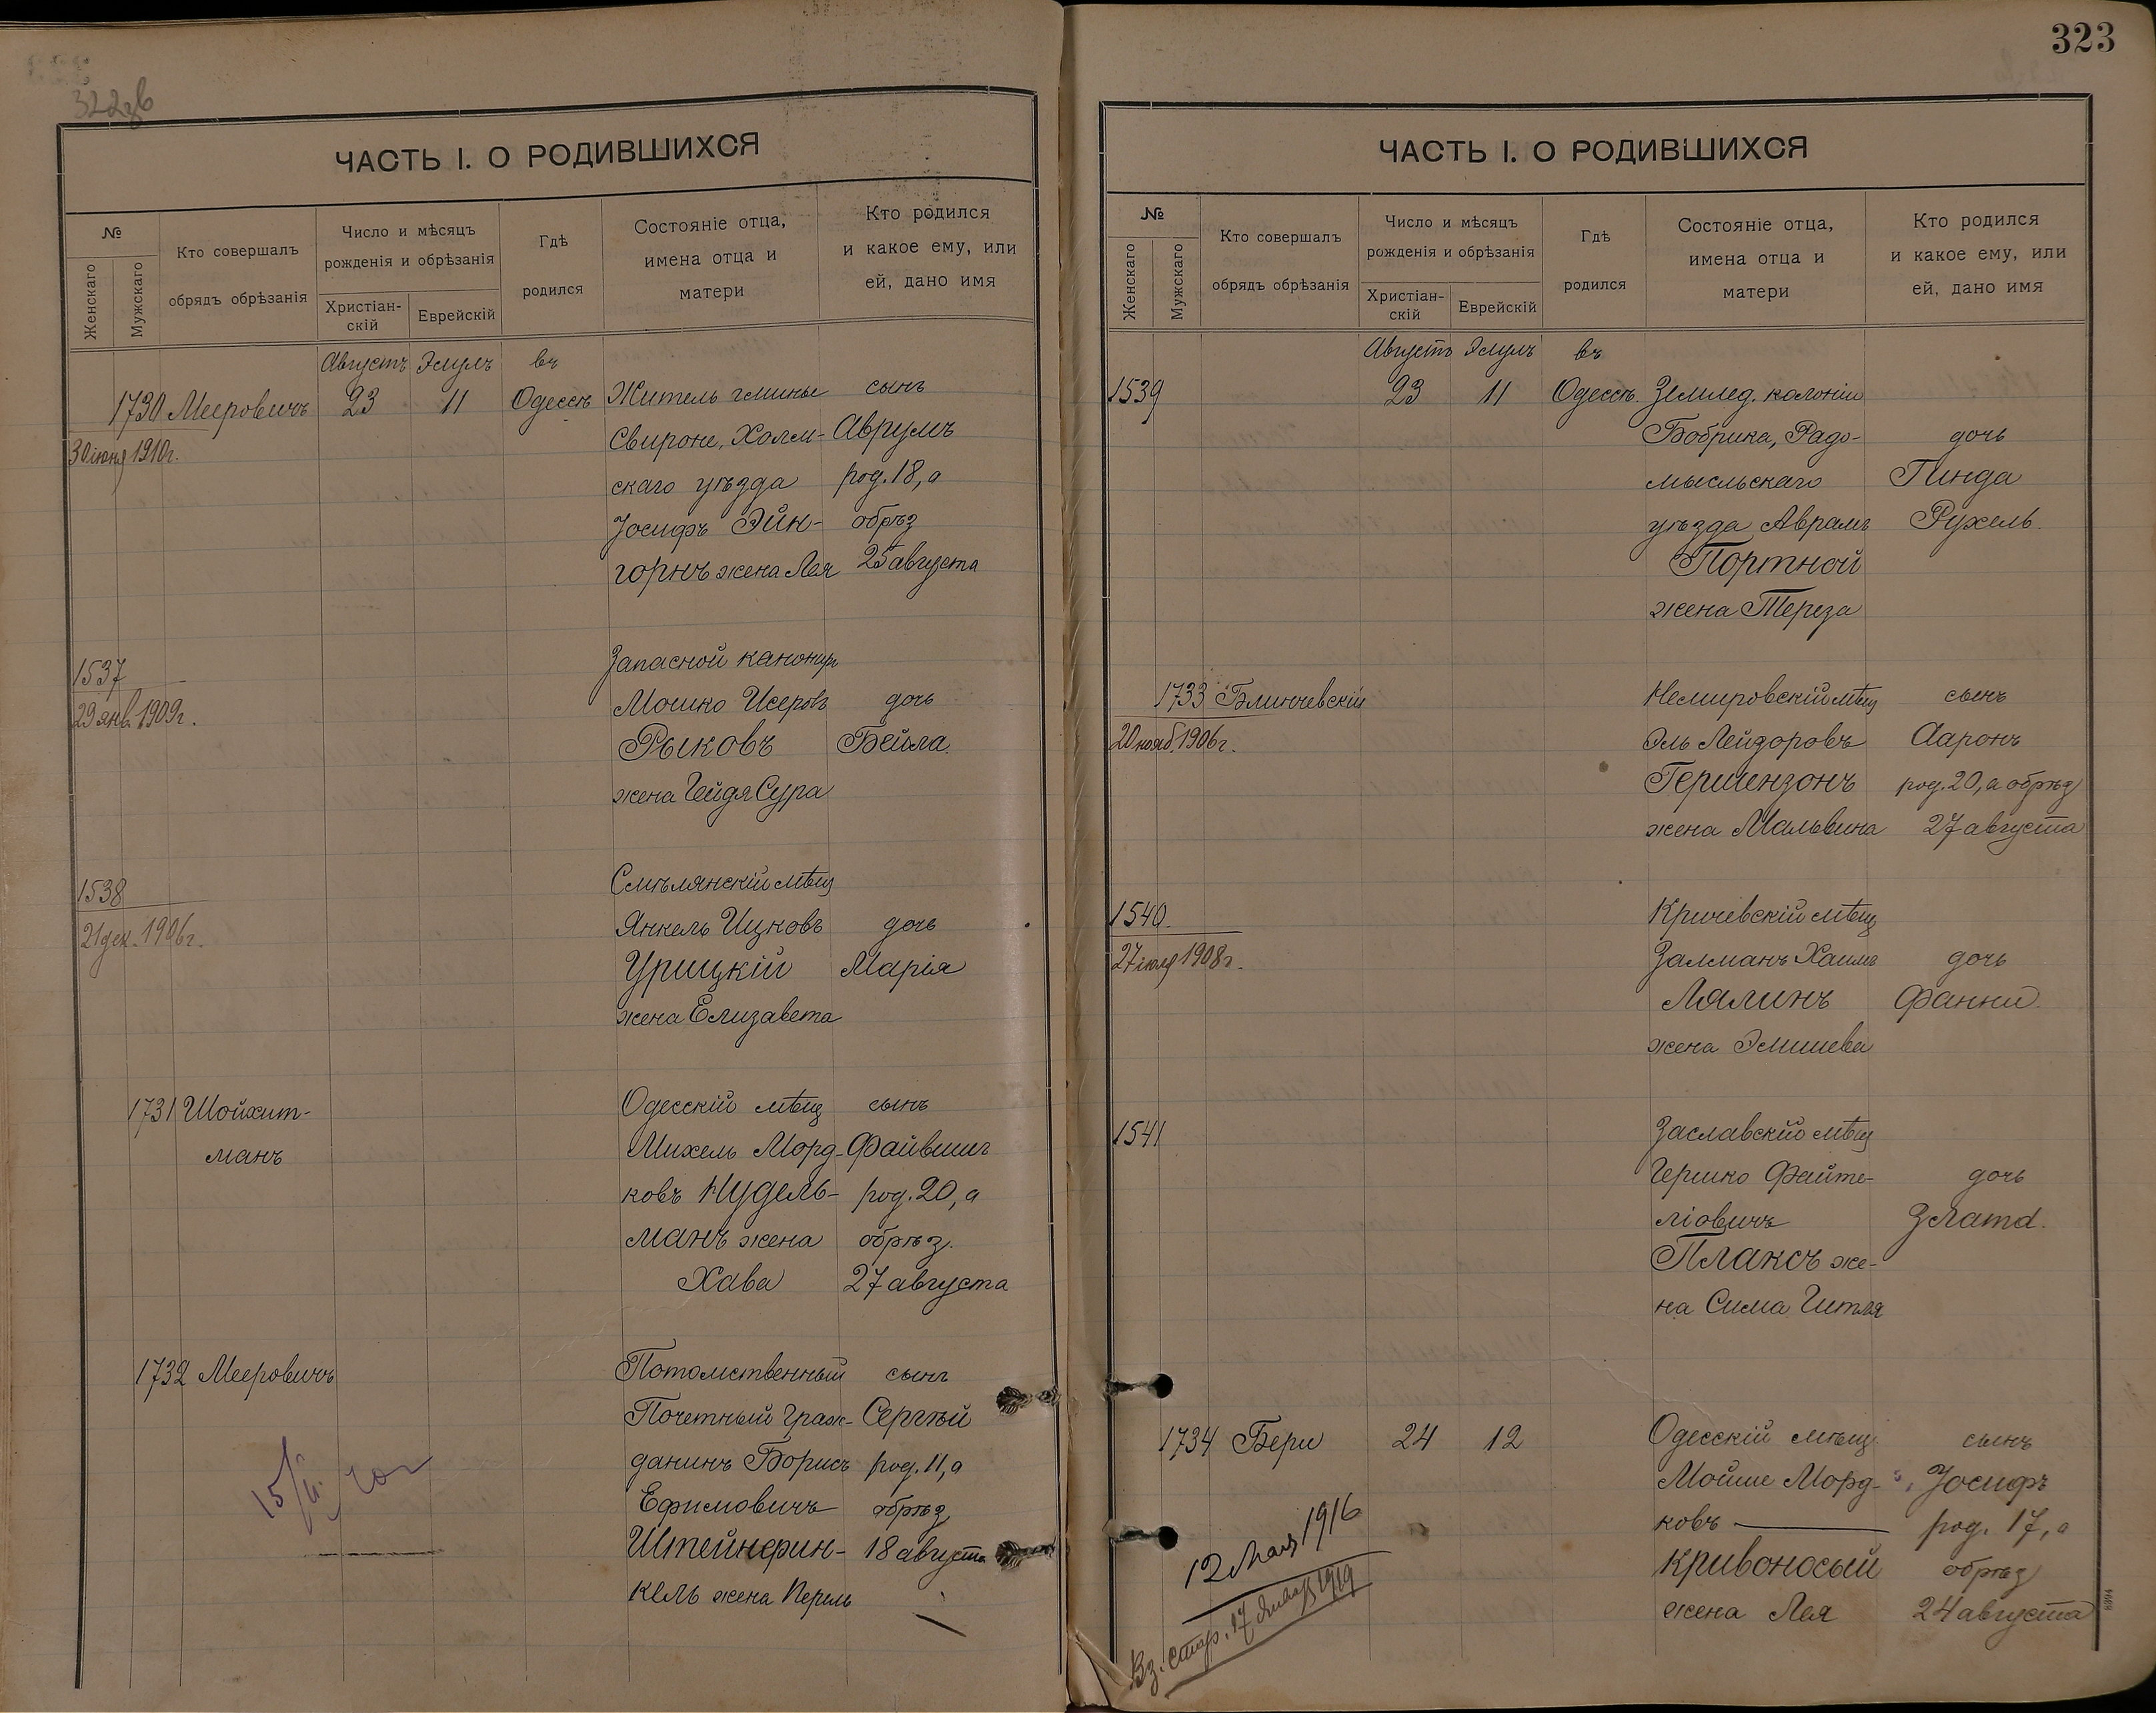 323
ЧАСТЬ I. О РОДИВШИХСЯ
№
Женскаго
Мужскаго
Кто совершалъ
обрядъ обрѣзанія
Число и мѣсяцъ
рожденія и обрѣзанія
Христіан-
скій
Еврейскій
Гдѣ
родился
Состояніе отца,
имена отца и
матери
Кто родился
и какое ему, или
ей, дано имя
Августъ Элулъ въ
1730 Мееровичъ 23 11 Одессѣ Житель гмины сынъ
30 іюня 1910г.
Свироне, Холм- Аврумъ
скаго уѣзда род. 18, а
Іосифъ Эйн- обрѣз
горнъ жена Лея 25 августа
1537
29 янв. 1909г.
Запасной канонир
Мошко Исеровъ дочь
Рыковъ Бейла.
жена Гейдя Сура
1538
21 дек. 1906г.
Смѣлянскій мѣщ
Янкель Ицковъ дочь
Урицкій Марія
жена Елизавета
1731 Шойхит- Одесскій мѣщ сынъ
манъ Михель Морд- Файвишъ
ковъ Нудель- род. 20, а
манъ жена обрѣз.
Хава 27 августа
1732 Мееровичъ Потомственный сынъ
Почетный Граж- Сергѣй
данинъ Борисъ род. 11, а
Ефимовичъ обрѣз
Штейнфин- 18 августа
кель жена Перль
ЧАСТЬ I. О РОДИВШИХСЯ
№
Женскаго
Мужскаго
Кто совершалъ
обрядъ обрѣзанія
Число и мѣсяцъ
рожденія и обрѣзанія
Христіан-
скій
Еврейскій
Гдѣ
родился
Состояніе отца,
имена отца и
матери
Кто родился
и какое ему, или
ей, дано имя
Августъ Элулъ въ
1539 23 11 Одессѣ. Землед. колоніи
Бобрика, Радо- дочь
мысльскаго Гинда
уѣзда Аврамъ Рухель.
Портной
жена Тереза
1733 Блинчевскій Немировскій мѣщ сынъ
20 нояб. 1906г.
Эль Лейзоровъ Ааронъ
Гершензонъ род. 20, а обрѣз
жена Мальвина 27 августа
1540.
27 іюля 1908г.
Кричевскій мѣщ
Залманъ Хаимъ дочь
Лялинъ Фанни.
жена Элишева
1541 Заславскій мѣщ
Гершко Файте- дочь
ліовичъ Злата.
Плаксъ же-
на Сима Гитля
1734 Бери 24 12 Одесскій мѣщ сынъ
Мойше Морд- Іосифъ
ковъ род. 17, а
Кривоносый обрѣз
жена Лея 24 августа
12 Мая 1916
Вз. стар. 17 Января 1919